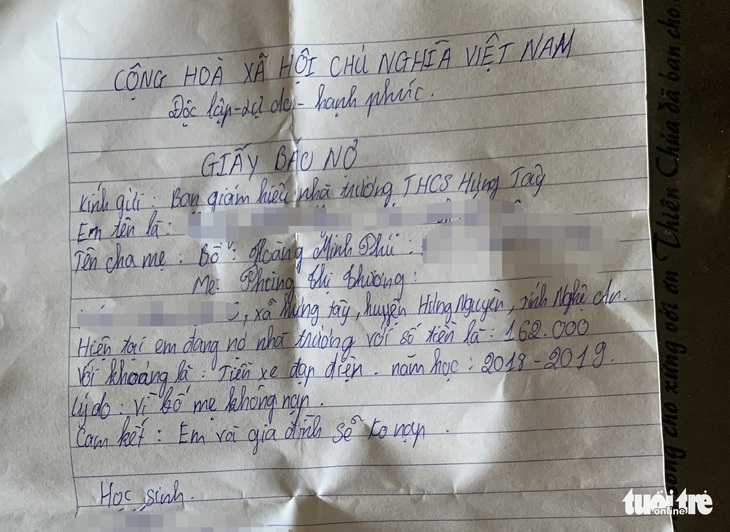 CỘNG HOÀ XÃ HỘI CHỦ NGHĨA VIỆT NAM
Độc lập - tự do - hạnh phúc.
GIẤY BÁO NỢ
Kính gửi : Ban giám hiệu nhà trường THCS Hưng Tây
Em tên là :
Tên cha mẹ : Bố : Hoàng Minh Phú :
Mẹ: Phùng thị thương :
, xã hưng tây, huyện Hưng Nguyên, tỉnh Nghệ An.
Hiện tại em đang nợ nhà trường với số tiền là : 162.000
Với khoảng là : Tiền xe đạp điện . năm học : 2018 - 2019.
Lý do : Vì bố mẹ không nạp .
Cam kết : Em và gia đình sẽ ko nạp .
Học sinh.
tuổi trẻ
online
cho xứng với ơn Thiên Chúa đã ban cho